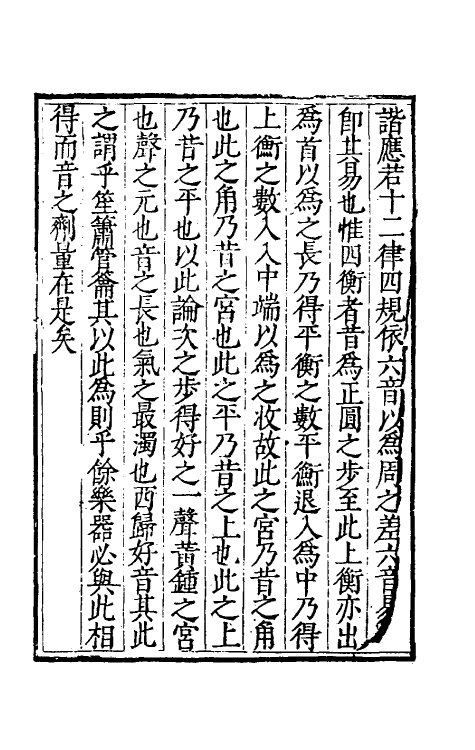 諧應若十二律四規依六音以為周之差六音
卽其易也惟四衡者昔為正圓之步至此上衡亦出
為首以為之長乃得平衡之數平衡退入為中乃得
上衡之數入入中端以為之收故此之宮乃昔之角
也此之角乃昔之宮也此之平乃昔之上也此之上
乃昔之平也以此論次之步得好之一聲黃鍾之宮
也聲之元也音之長也氣之最濁也西歸好音其此
之謂乎笙簫管籥其以此為則乎餘樂器必與此相
得而音之劑量在是矣